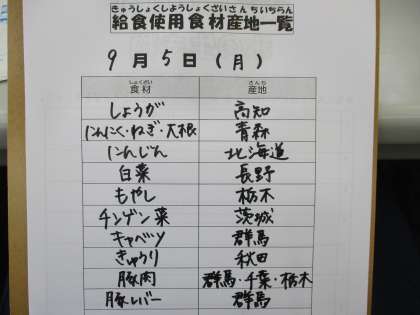 きゅうしょくしようしょくざいさんちいちらん
給食使用食材産地一覧
9月5日(月)
しょくざい さんち
食材 産地
しょうが 高知
にんにく・ねぎ・大根 青森
にんじん 北海道
白菜 長野
もやし 栃木
チンゲン菜 茨城
キャベツ 群馬
きゅうり 秋田
豚肉 群馬・千葉・栃木
豚レバー 群馬